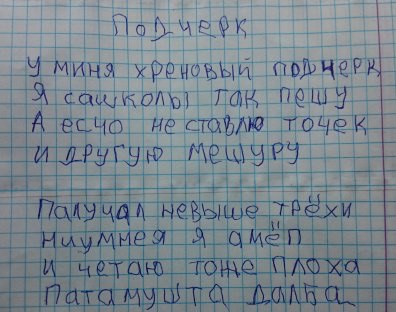 Подчерк
У миня хреновый подчерк
Я сашколы так пешу
А есчо не ставлю точек
И другую мешуру
Палучал невыше трёхи
Ниумнея я амёп
И четаю тоже плоха
Патамушта далба